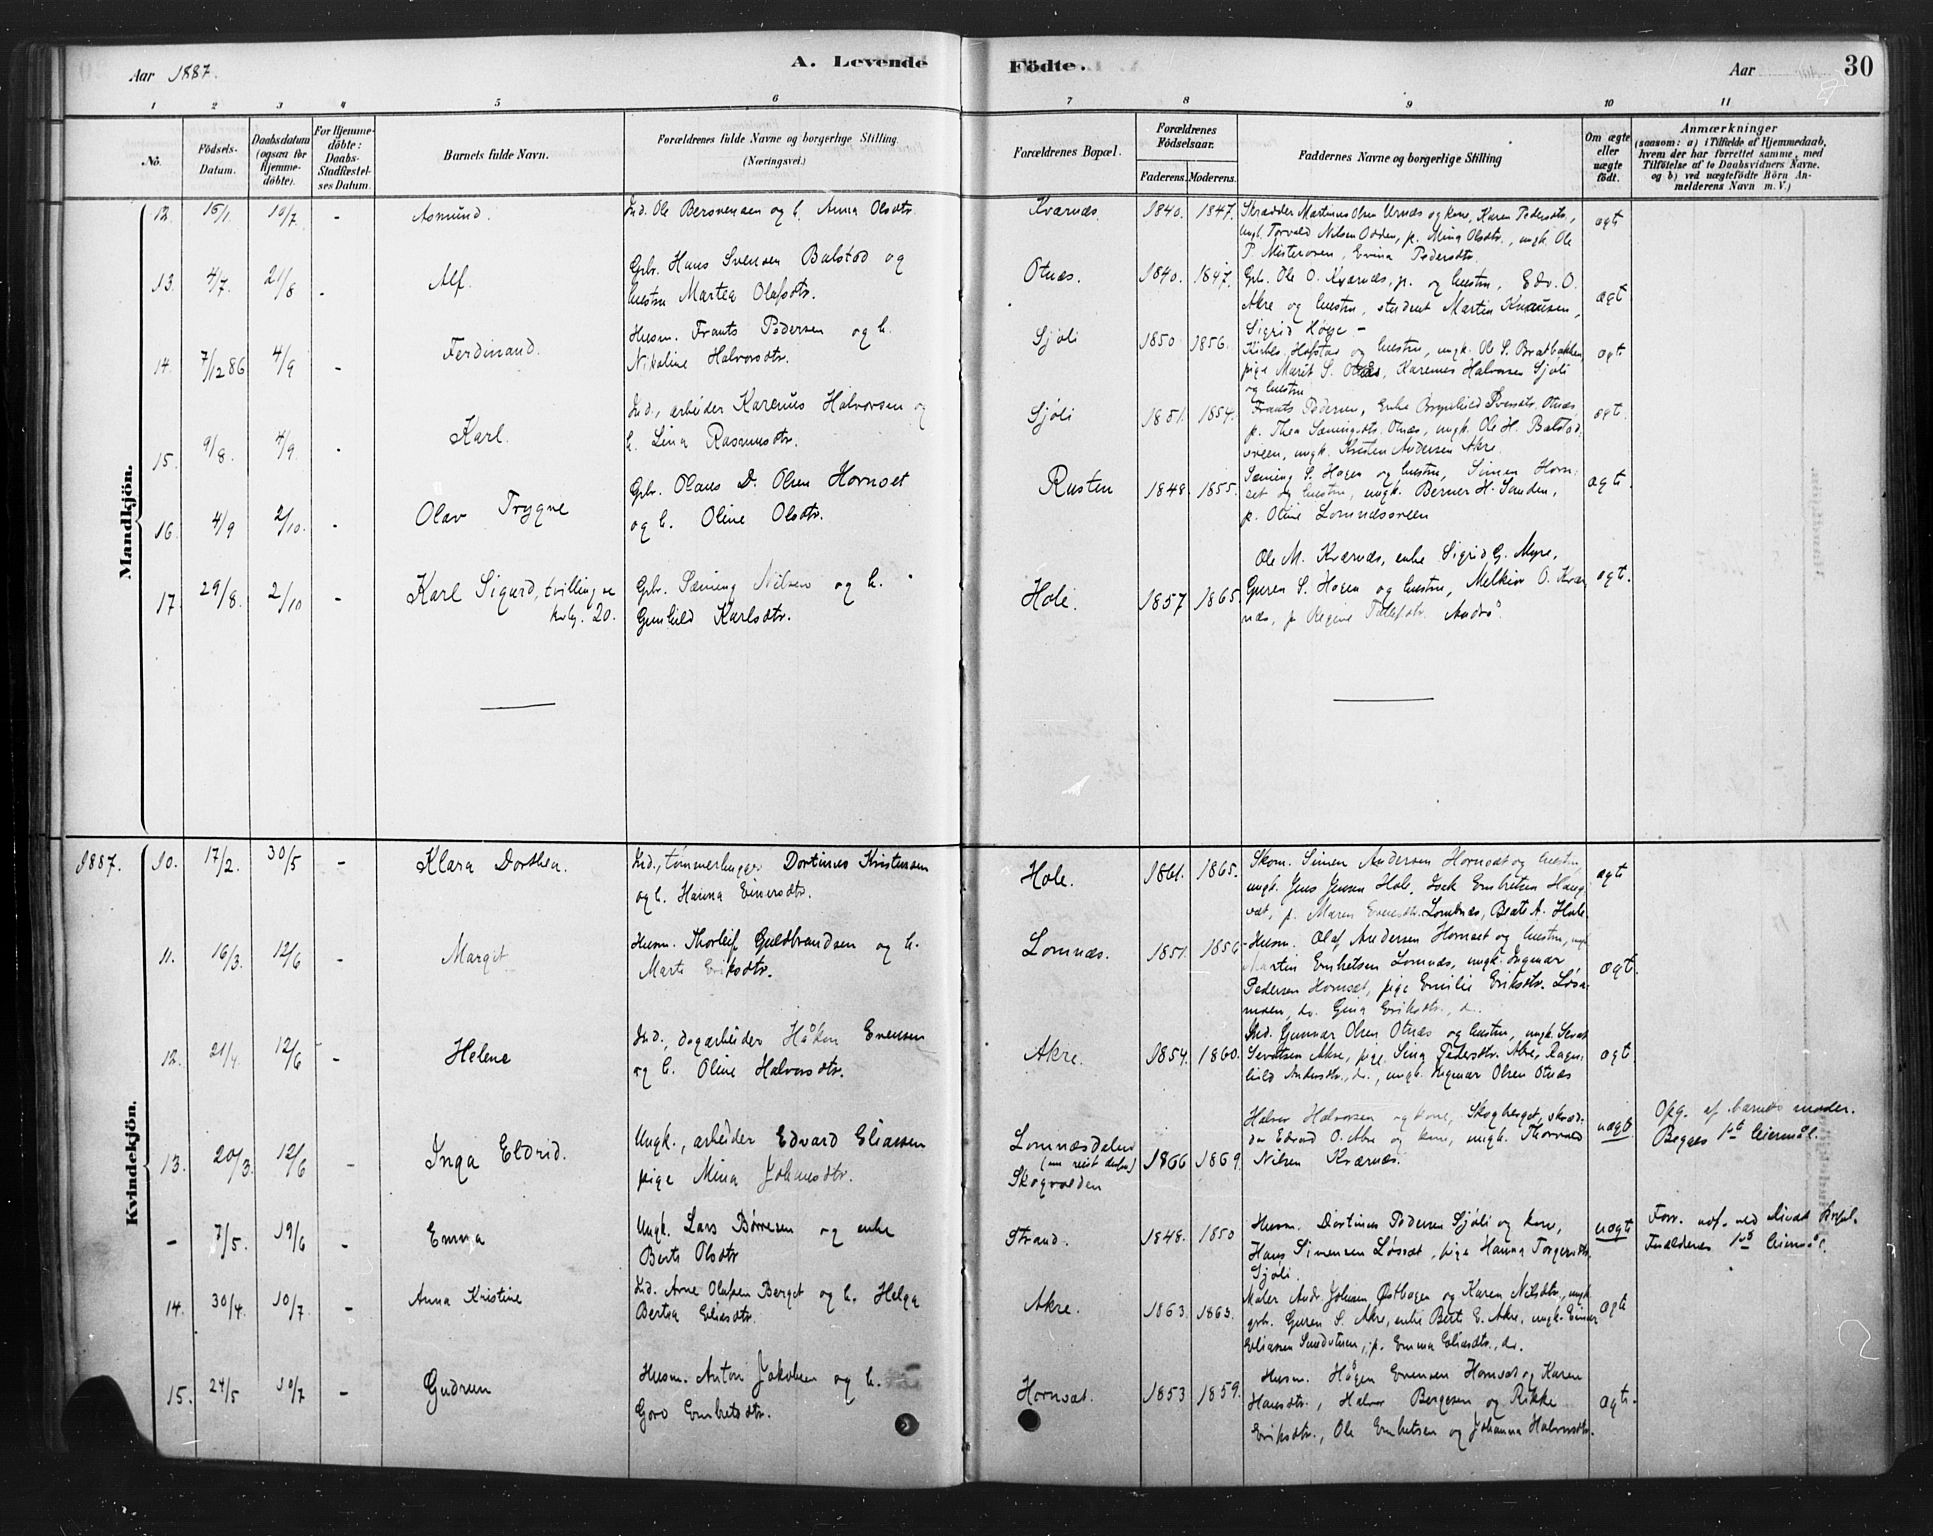 Aar 1887.
A. Levende
Födte.
Aar
30
1 2 3 4 5 6 7 8 9 10 11
No.
Födsels-Datum.
Daabsdatum (ogsaa for Hjemme-döbte).
For Hjemme-döbte: Daabs-Stadfæstel-ses Datum.
Barnets fulde Navn.
Forældrenes fulde Navne og borgerlige Stilling. (Næringsvei.)
Forældrenes Bopæl.
Forældrenes Födselsaar.
Faderens. Moderens.
Faddernes Navne og borgerlige Stilling
Om ægte eller uægte födt.
Anmærkninger
(saasom: a) i Tilfælde af Hjemmedaab, hvem der har forrettet samme, med Tilföielse af to Daabsvidners Navne. og b) ved uægtefödte Börn An-melderens Navn m. V.)
Mandkjön.
12. 15/1. 10/7. - Asmund. Ind. Ole Bersvensen og h. Anna Olsdtr. Kværnæs. 1840. 1847. Skrædder Martinus Olsen Urnæs og kone, Karen Pedersdtr.,
ungk. Torvald Nilsen Odden, p. Mina Olsdtr., ungk. Ole
P. Misterosen, Evina Pedersdtr. ægte
13. 4/7. 21/8 - Alf. Gbr. Hans Svensen Balstad og
hustru Martea Olafsdtr. Otnæs. 1840. 1847. Gbr. Ole O. Kværnæs, p. og hustru, Edv. O.
Akre og hustru, student Martin Knausen,
Sigrid Høye - ægt
14. 7/12 86 4/9 - Ferdinand. Husm. Frants Pedersen og h.
Nikoline Halvorsdtr. Sjøli 1850 1856. Hofstad og hustru, ungk. Ole S. Bratbakken,
pige Marit S. Otnæs, Karenus Halvorsen Sjøli
og hustru ægt
15. 9/8. 4/9. - Karl. Ind., arbeider Karenus Halvorsen og
h. Lina Rasmusdtr. Sjøli 1851. 1854. Frants Pedersen, Enke Otnæs,
p. Thea Sæmingsdtr. Otnæs, ungk. Ole H. Balstad
sveen, ungk. Kristen Andersen Akre. ægt.
16. 4/9 2/10. - Olav Trygve Gbr. Olaus D. Olsen Hornset
og h. Oline Olsdtr. Rusten 1848 1855. Sæming S. Hagen og hustru, Simen Horn-
set og hustru, ungk. Berner H. Sanden,
p. Oline Lomnæssveen ægte
17. 29/8. 2/10 - Karl Sigurd, tvilling m
kvky. 20. Gbr. Sæming Nilsen og h.
Gunhild Karlsdtr. Hole. 1857 1865. Ole M. Kværnæs, enke Sigrid G. Myre,
Guren S. Hagen og hustru, Melkior O. Kvær-
næs, p. Regine Tollefsdtr. Andrå ægt.
Kvindekjön.
1887. 10. 17/2. 30/5 - Klara Dorthea. Ind., tømmerhugger Dortinus Kristensen
og h. Hanna Einersdtr. Hole. 1861. 1865. Skom. Simen Andersen Hornset og hustru,
ungk. Jens Jensen Hole, Isak Embretsen Haug-
set, p. Maren Evensdtr. Lomnæs, Beate A. Hole. ægt
11. 16/3. 12/6 - Margit Husm. Thorleif Guldbrandsen og h.
Marte Eriksdtr. Lomnæs. 1851. 1856 Husm. Olaf Andersen Hornset og hustru, ungk.
Martin Embretsen Lomnæs, ungk. Ingmar
Pedersen Hornset, pige Emilie Eriksdtr. Løsa-
moen, do. Gina Eriksdtr., do. ægt.
12. 21/4. 12/6 - Helene Ind., dagarbeider Håkon Evensen
og h. Oline Halvorsdtr. Akre. 1854. 1860. Ind. Gunnar Olsen Otnæs og hustru, ungk. Sevat
Sevatsen Akre, pige Lina Pedersdtr. Akre, Ragn-
hild Andersdtr., do., ungk. Ingmar Olsen Otnæs ægt
13. 20/3. 12/6 - Inga Eldrid. Ungk., arbeider Edvard Eliassen
pige Mina Johansdtr. Lomnæsdalen
Skogvolden 1866 1869. Halvor Halvorsen og kone, Skogberget, skræd-
der Edvard O. Akre og kone, ungk. Thorvald
Nilsen Kværnæs. uægt Opg. af barnets moder.
Begges 1ste leiermål.
- 7/5. 19/6 - Emma Ungk. Lars Børresen og enke
Berte Olsdtr Strand. 1848. 1850 Husm. Dortinus Pedersen Sjøli og kone,
Hans Simensen Løsset, pige Hanna Torgersdtr.
Sjøli. uægt Forr. udf. ved
Forældrenes 1ste leiermål.
14. 30/4. 10/7. - Anna Kristine Ind. Arne Olafsen Berget og h. Helga
Bertea Eliasdtr. Akre. 1863. 1863. Maler Andr. Johnsen Østhagen og Karen Nilsdtr., ungk.
gbr. Guren S. Akre, enke Berit E. Akre, ungk. Einar
Eliassen Sundvolsen, p. Emma Eliasdtr., do. ægte
15. 24/5 10/7 - Gudrun Husm. Anton Jakobsen og h.
Goro Embretsdtr. Hornset. 1853 1859. Husm. Hågen Evensen Hornset og Karen
Hansdtr., Halvor Bergesen og Rikke
Eriksdtr., Ole Embretsen og Johanna Halvorsdtr. ægt.